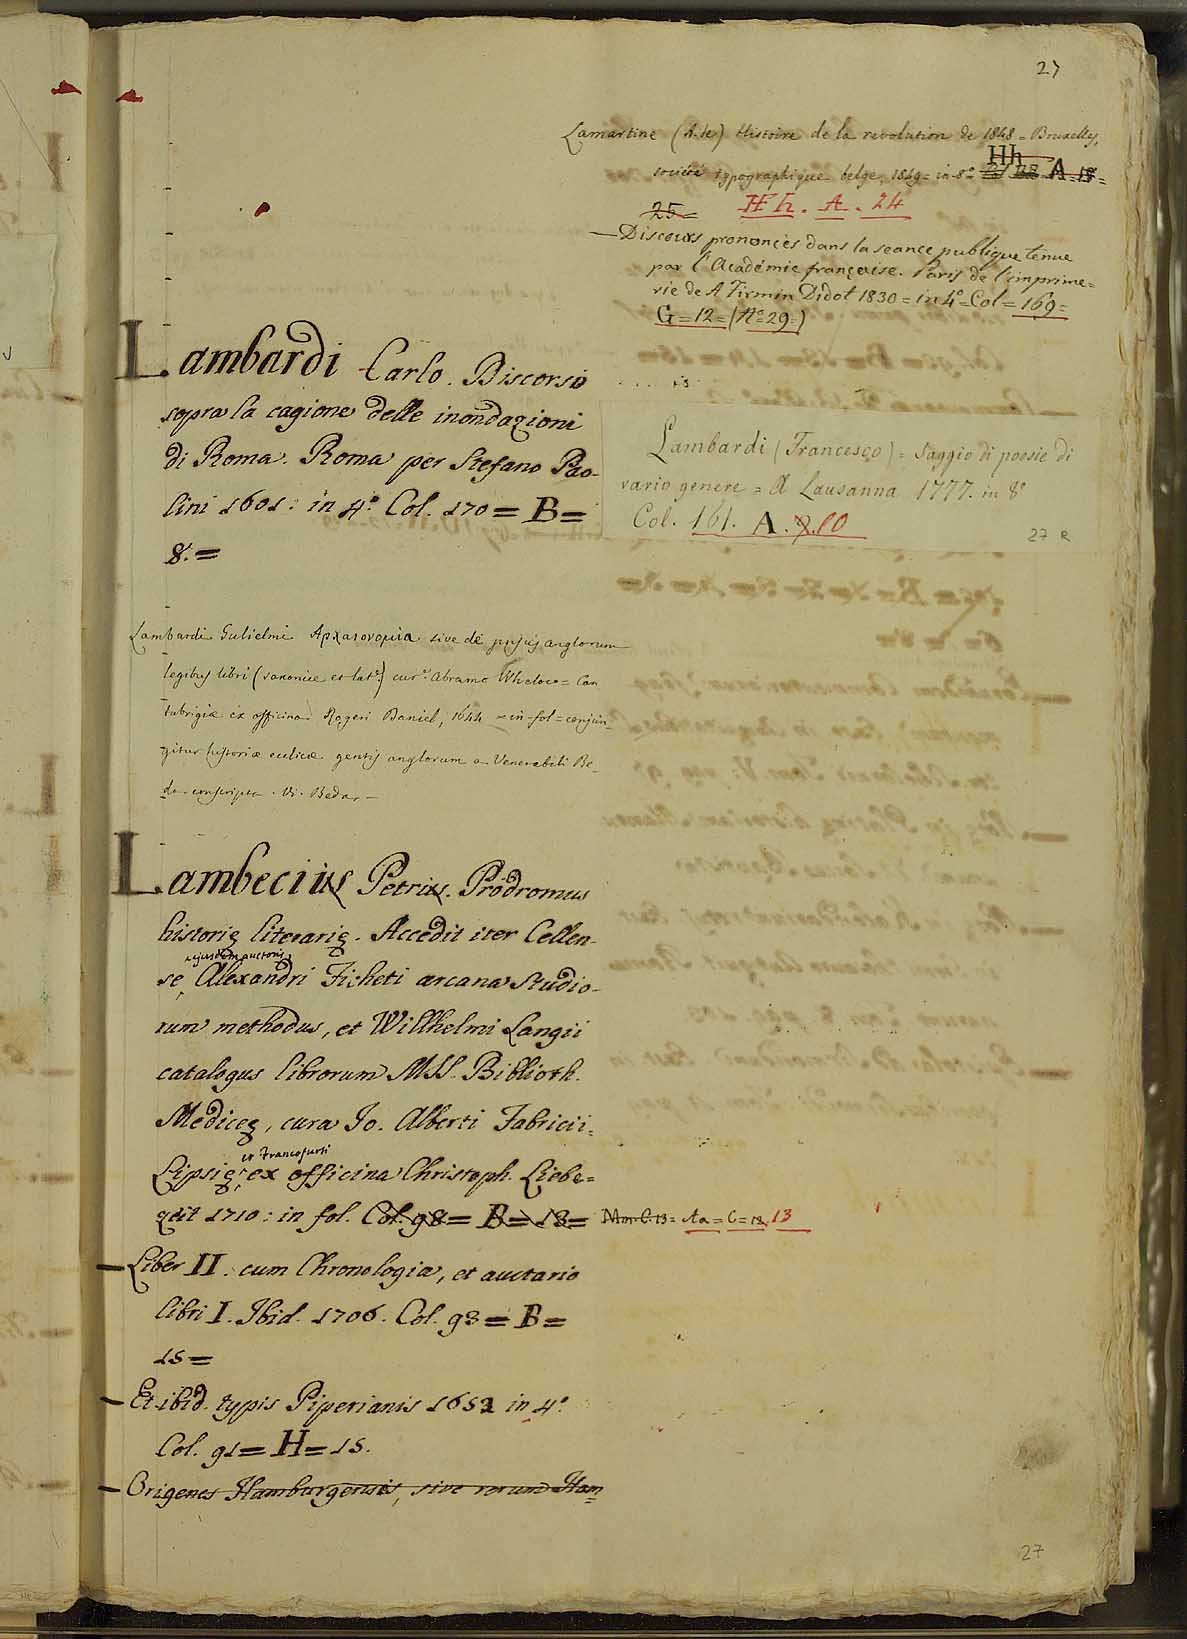 27
Lamartine (A. de) Histoire de la revolution de 1848 = Bruxelles,
société typographique belge, 1849 = in 8.º Hh A = 18 =
25 = Hh. A. 24
— Discours prononcès dans la seance publique tenue
par l'Académie française. Paris de l'imprime=
rie de A Firmin Didot 1830 = in 4º = Col = 169 =
G = 12 = (Nº 29.)
Lambardi Carlo. Discorso
sopra la cagione delle inondazioni
di Roma. Roma per Stefano Pao-
lini 1601: in 4.º Col. 170 = B =
8. =
Lambardi (Francesco) = Saggio di poesie di
vario genere = A Lausanna 1777. in 8º
Col. 161. A. 9. 10
27 R
Lambardi Gulielmi Αρχαιονομια sive de priscis anglorum
legibus libri (saxonice et lat.e) cur.e Abramo Wheloco = Can
tabrigiæ ex officina Rogeri Daniel, 1644 = in fol = conjun_
gitur historiæ ecclicæ gentis anglorum a Venerabili Be_
da conscripta. Vi. Beda, —
Lambecius Petrus. Prodromus
historię literarię. Accedit iter Cellen-
ejusdem auctoris,
se, Alexandri Ficheti arcana studio-
rum methodus, et Willhelmi Langii
catalogus librorum MSS. Biblioth.
Mediceę, cura Jo. Alberti Fabricii.
et Francofurti
Lipsię, ex officina Christoph. Liebe=
zeit 1710: in fol. Col. 98 = B = 13 = Mm. C. 13 = Aa = C = 12 13
— Liber II. cum Chronologia, et auctario
libri I. Ibid. 1706. Col. 93 = B =
15 =
— Et ibid. typis Piperianis 1652 in 4.º
Col. 91 = H = 15.
— Origenes Hamburgenses, sive rerum Ham=
27